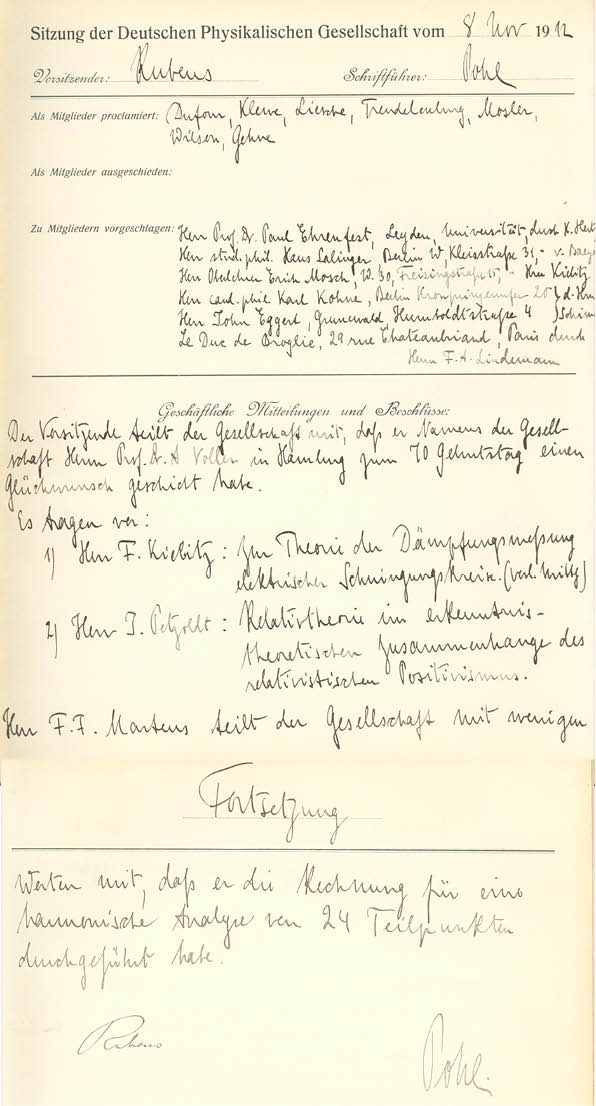 Sitzung der Deutschen Physikalischen Gesellschaft vom 8 Nov 1912
Vorsitzender: Rubens Schriftführer: Pohl
Als Mitglieder proclamiert: Dufour, Klewe, Liesche, Trendelenburg, Mosler,
Wilson, Gehne
Als Mitglieder ausgeschieden:
Zu Mitgliedern vorgeschlagen: Herr Prof. Dr. Paul Ehrenfest, Leyden, Universität, durch H.
Herr stud. phil. Hans Salinger Berlin W, Kleiststraße 31, - v. Baeye
Herr Oberlehrer Erich Mosch, W. 30, Freisingstraße 15, - Herrn Kiebitz
Herr cand. phil. Karl Kohne, Berlin 20 d. Hrn
Herr John Eggert, Grunewald Humboldtstraße 4
Le Duc de Broglie, 29 rue Chateaubriand, Paris durch
Herrn F. A. Lindemann
Geschäftliche Mitteilungen und Beschlüsse:
Der Vorsitzende teilt der Gesellschaft mit, daß er Namens der Gesell-
schaft Herrn Prof. Dr. A Voller in Hamburg zum 70 Geburtstag einen
Glückwunsch geschickt habe.
Es tragen vor:
1) Herr F. Kiebitz: Zur Theorie der Dämpfungsmeßung
elektrischer Schwingungskreise. (vorl. Mittlg)
2) Herr J. Petzoldt: Relativtheorie im erkenntnis-
theoretischen Zusammenhange des
relativistischen Positivismus.
Herr F. F. Martens teilt der Gesellschaft mit wenigen
Fortsetzung
Worten mit, daß er die Rechnung für eine
harmonische Analyse von 24 Teilpunkten
durchgeführt habe.
Rubens Pohl.